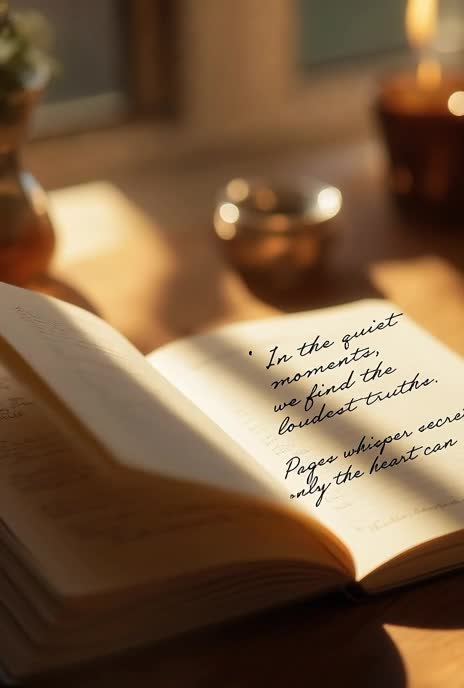 In the quiet
moments,
we find the
loudest truths.
Pages whisper
only the heart can